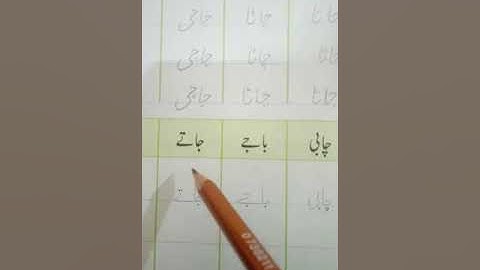 جاتا جاتا جاجی
جاتا جاتا جاجی
جاتا جاتا جاجی
چابی باجے جاتے
چابی باجے جاتے